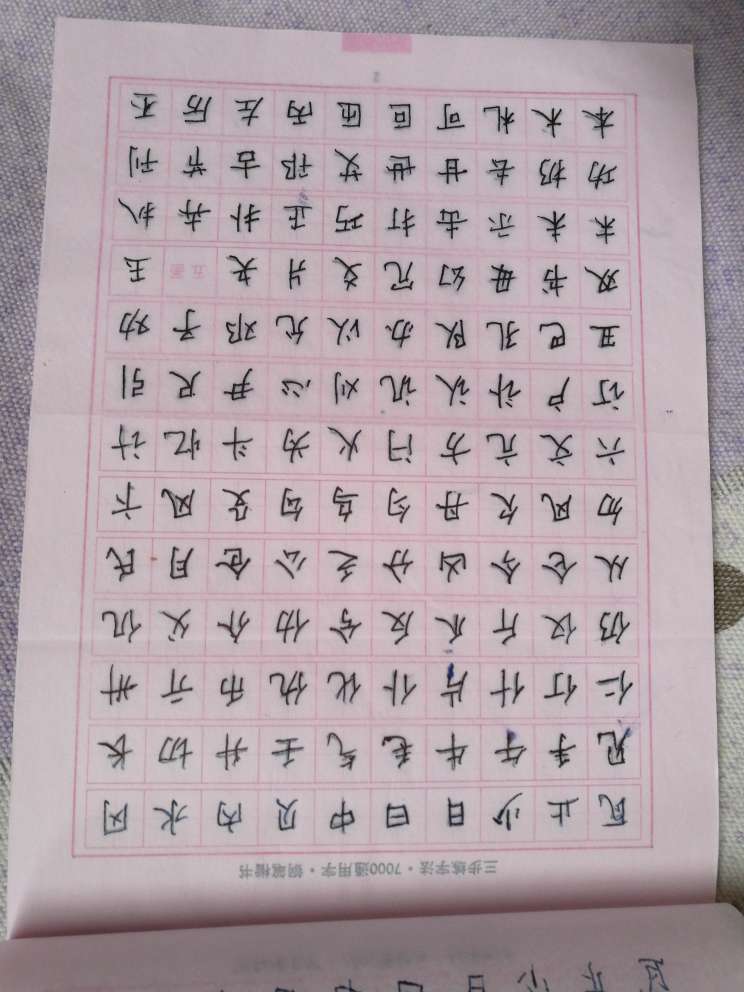 三步练字法·7000通用字·钢笔楷书
瓦止少日曰中贝内水冈
见手午牛毛气壬升切长
仁仃什片仆化仇币亓卅
仍仅斤爪反兮介父仉
从仑今凶分乏公仓月氏
勿风欠丹匀乌勾殳凤卞
六文亢方闩火为斗忆计
订户讣认讥刈心尹尺引
丑巴孔队办以允邓予劝
双书毋幻冗爻爿夬五画玉
末未示击打巧正扑卉扒
功扔去甘世艾邗古节刊
本术札可叵匝丙左厉丕